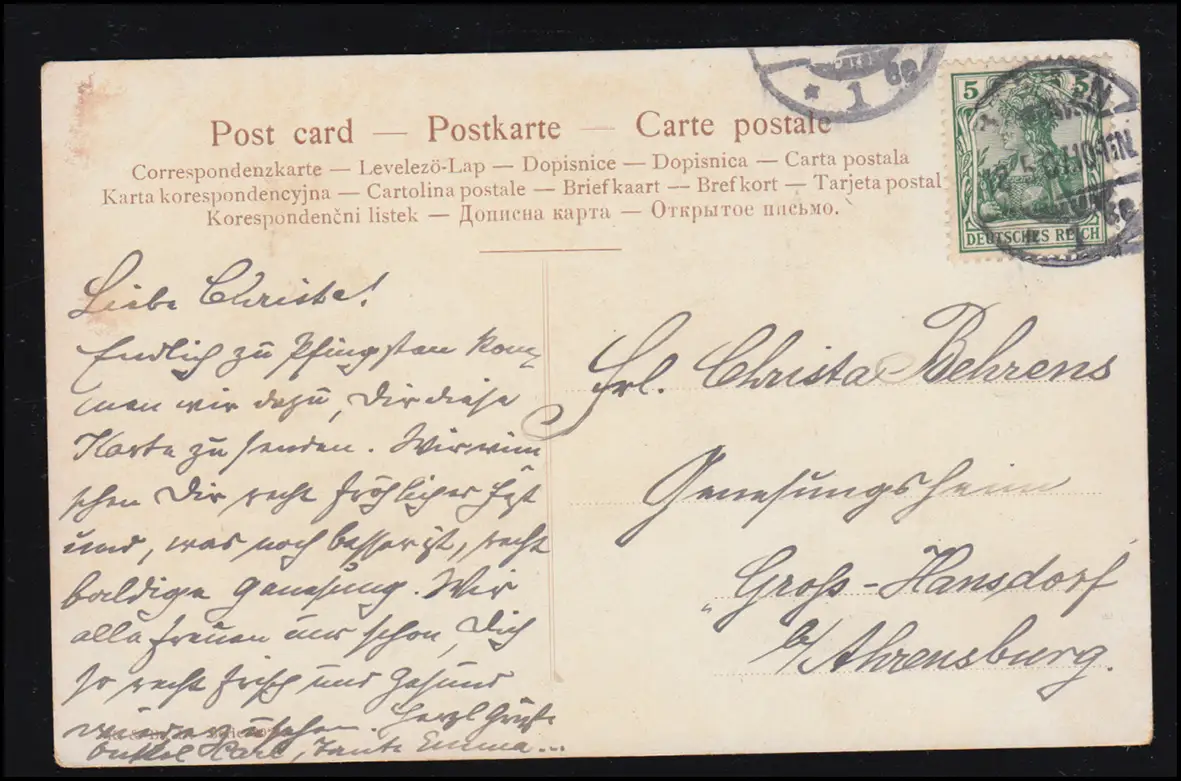 Post card — Postkarte — Carte postale
Correspondenzkarte — Levelező-Lap — Dopisnice — Dopisnica — Carta postala
Karta korespondencyjna — Cartolina postale — Briefkaart — Brefkort — Tarjeta postal
Korespondenčni listek — Дописна карта — Открытое письмо.
* 1 6e
5 5
DEUTSCHES REICH
Liebe Christa!
Endlich zu Pfingsten kom-
men wir dazu, Dir diese
Karte zu senden. Wir wün
schen Dir recht fröhliches Fest
und, was noch besser ist, recht
baldige Genesung. Wir
alle freuen uns schon, Dich
so recht frisch und gesund
wiederzusehen. Herzl. Grüße
Onkel Karl, Tante Emma...
Frl. Christa Behrens
Genesungsheim
Groß-Hansdorf
b/Ahrensburg.